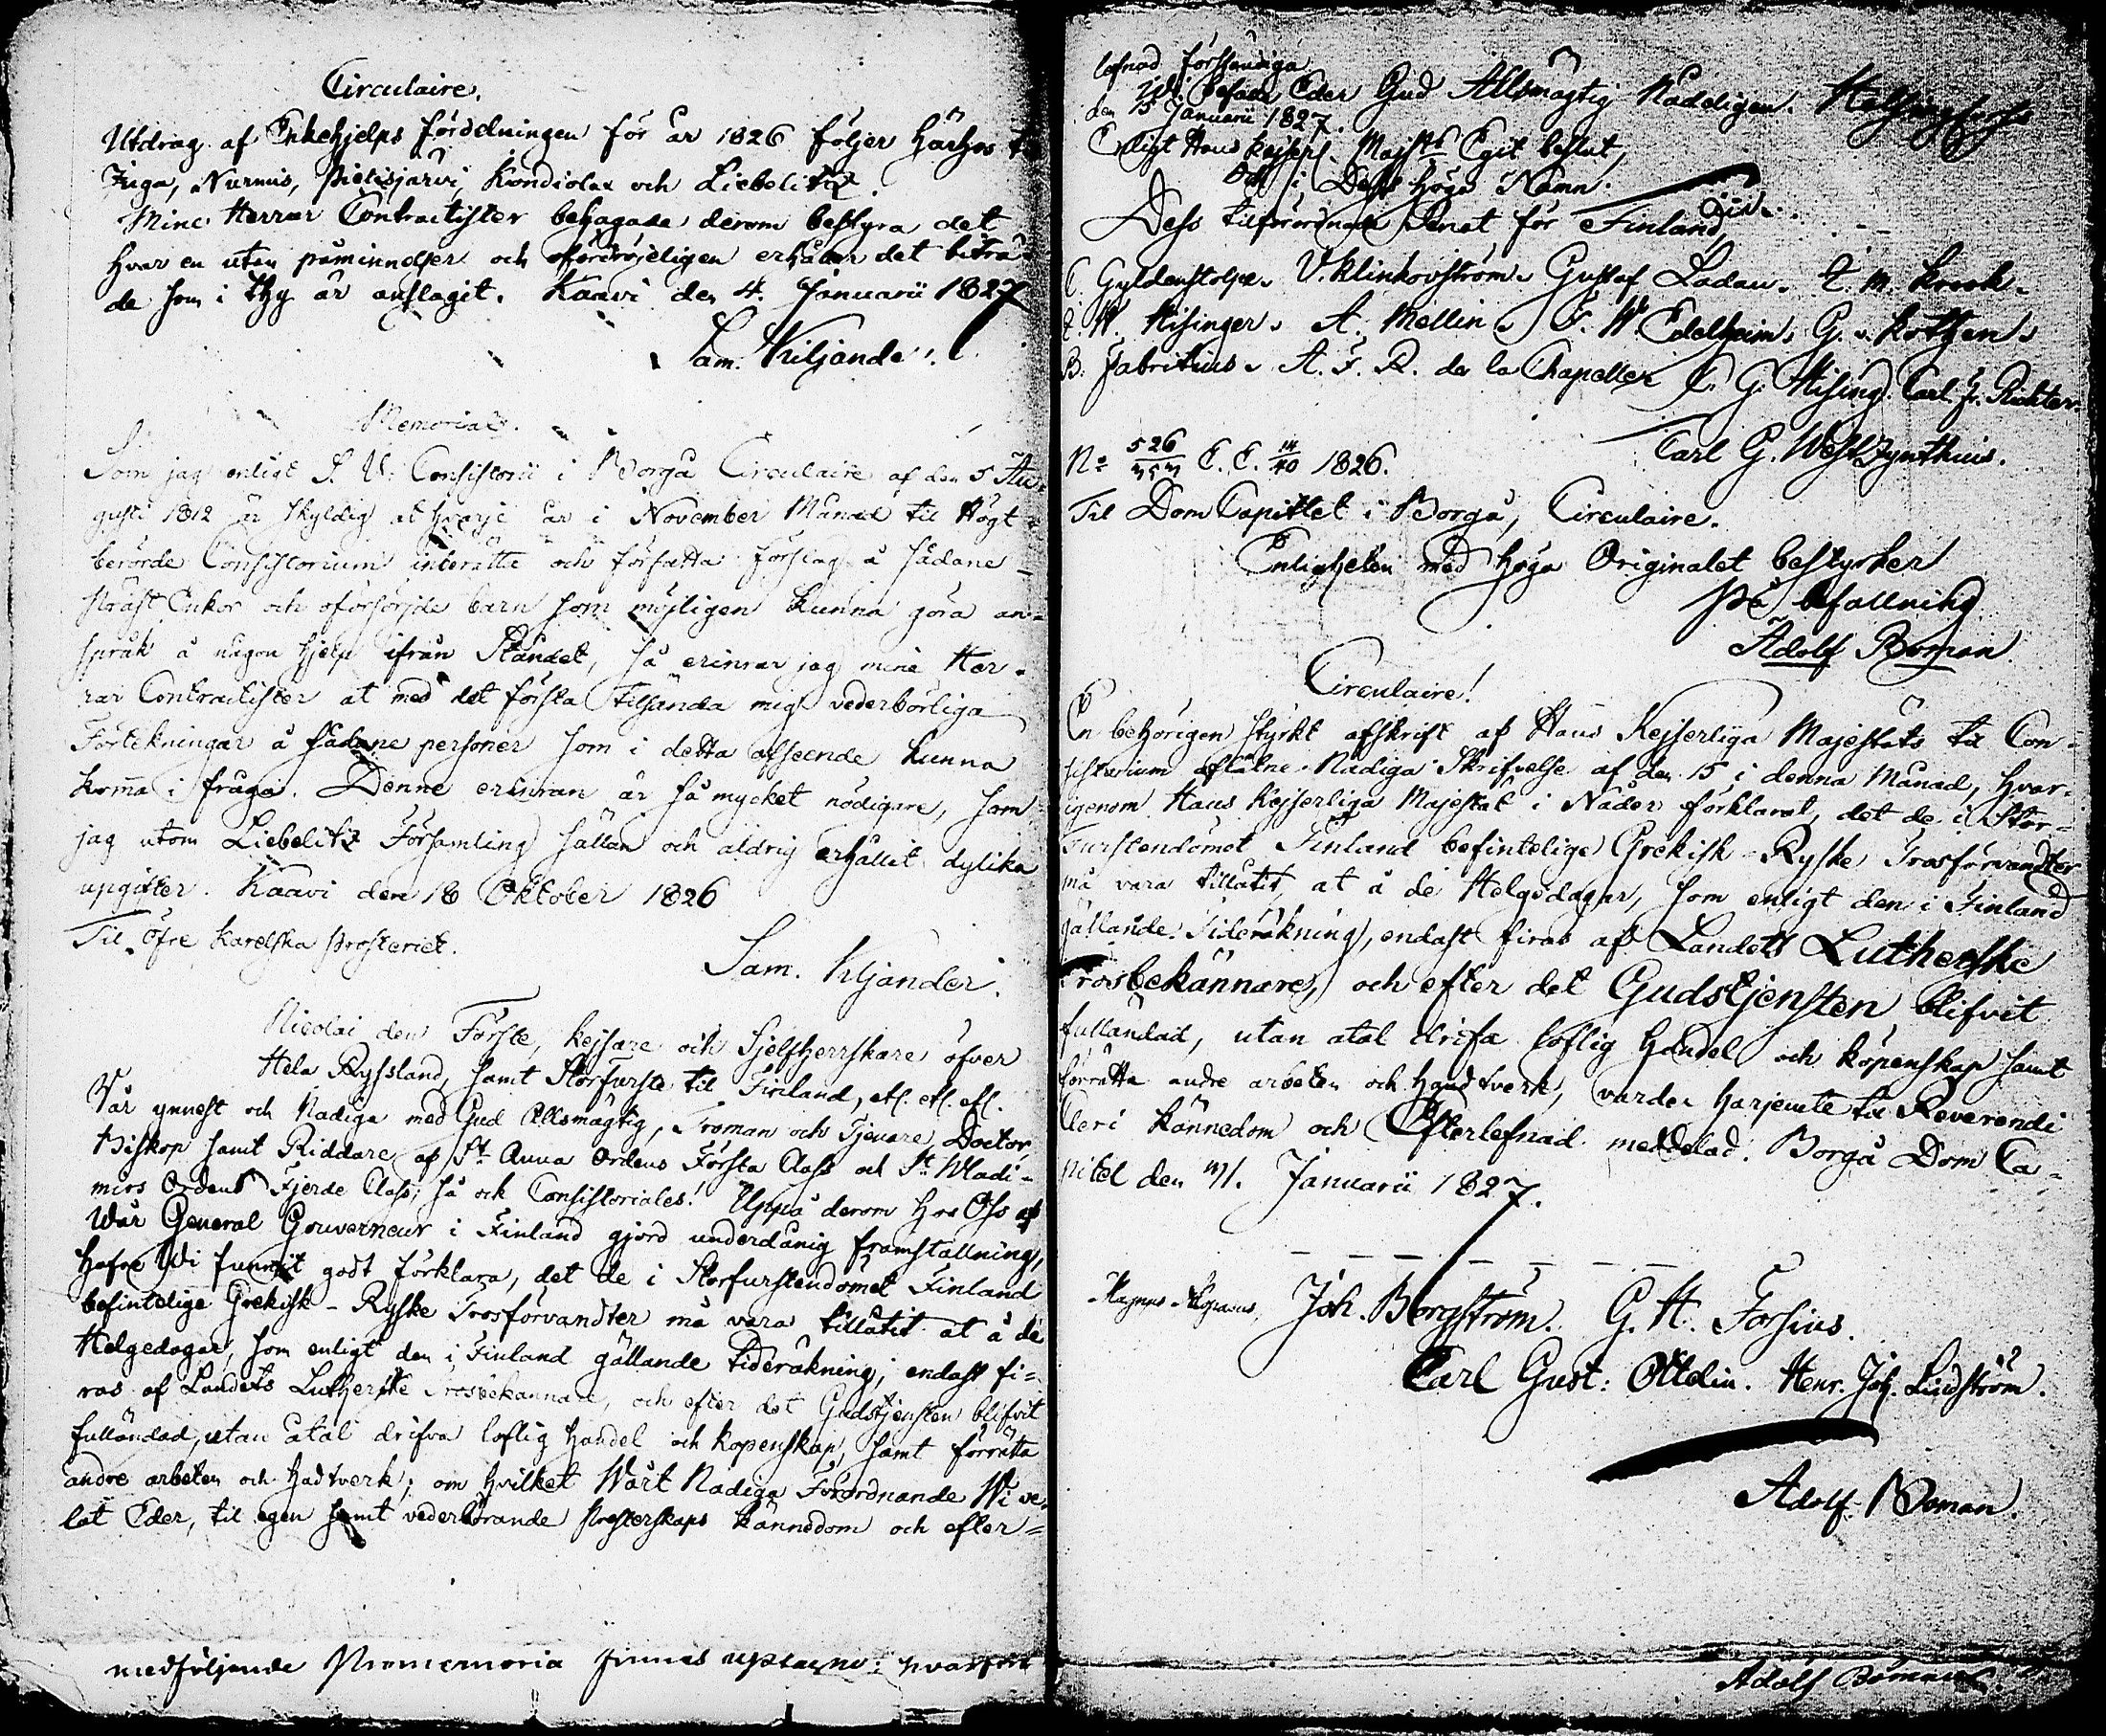 Circulaire.
Utdrag af Enkehjelps fördelningen för år 1826 följer härhos til
Juga, Nurmis, Pielisjärvi, Kondiolax och Liebelitz.
Mine Herrar Contractister behagade derom bestyra det
hvar en utan påminnelser och ofördröjeligen erhåller det biträ-
de som i thy är anslagit. Kaavi den 4. Januarii 1827
Sam. Kiljander.
Memorial.
Som jag enligt S. V. Consistorii i Borgå Circulaire af den 5 Au-
gusti 1812 är skyldig at hvarje år i November Månad til Högt-
berörde Consistorium inberätta och författa förslag å sådane
Präst Enkor och oförsörjde barn som möjligen kunna göra an-
språk å någon hjelp ifrån Ståndet, så erinrar jag mine Her-
rar Contractister at med det första tilsända mig vederbörliga
Förtekningar å sådane personer som i detta afseende kunna
komma i fråga. Denne erinran är så mycket nödigare, som
jag utom Liebelitz Församling sällan och aldrig erhållit dylika
upgifter. Kaavi den 18 Oktober 1826
Til Öfre Karelska Prosteriet.
Sam. Kiljander.
Nicolai den Förste, Kejsare och Sjelfherrskare öfver
Hela Ryssland, samt Storfurste til Finland, etc. etc. etc.
Vår ynnest och Nådiga med Gud Allsmägtig, Troman och Tjenare, Doctor,
Biskop samt Riddare af St. Anna Ordens Första Class och St. Wladi-
mirs Ordens Fjerde Class, så ock Consistoriales! Uppå derom hos Oss af
Wår General Gouverneur i Finland gjord underdånig framställning,
hafve Wi funnit godt förklara, det de i Storfurstendömet Finland
befintelige Grekisk-Ryske Trosförvandter må vara tillåtit at å de
Helgedagar, som enligt den i Finland gällande tideräkning, endast fi-
ras af Landets Lutherske Trosbekännare, och efter det Gudstjensten blifvit
fulländad, utan åtal drifva loflig handel och köpenskap, samt förrätta
andre arbeten och hadtverk; om hvilket Wårt Nådiga Förordnande Wi ve-
lat Eder, til egen samt vederbörande Presterskaps kännedom och efter-
medföljande Promemoria finnes
lefnad förständiga
Wi befalle Eder Gud Allsmägtig Nådeligen. Helsingfors
den 15 Januarii 1827.
Enligt Hans Kejserl. Majsts Egit beslut,
Och i Dess höga Namn.
Dess tilförordnade Senat för Finland,
C. Gyldenstolpe. V. Klinkovström. Gustaf Ladau. E. M. Krook.
E. W. Hisinger. A. Mellin. F. W. Edelheim. G. v. Kothen.
B. Fabritius. A. F. R. de la Chapelle. C. G. Hising. Carl Fr. Richter.
Carl G. Westzynthius.
No 526 E. E. 1826.
Til Dom Capitlet i Borgå, Circulaire.
Enligheten med höga Originalet bestyrker
På befallning
Adolf Boman
Circulaire!
En behörigen styrkt afskrift af Hans Kejserliga Majestäts til Con-
sistorium aflåtne Nådiga Skrifvelse af den 15 i denna Månad, hvar-
igenom Hans Kejserliga Majestät i Nåder förklarat, det de i Stor-
Furstendömet Finland befintelige Grekisk-Ryske Trosförvandter
må vara tillåtit, at å de Helgedagar, som enligt den i Finland
gällande Tideräkning, endast firas af Landets Lutherske
Trosbekännare, och efter det Gudstjensten blifvit
fulländad, utan åtal drifva loflig handel och köpenskap samt
förrätta andre arbeten och handtverk, varder härjemte til Reverendi
Cleri kännedom och Efterlefnad meddelad. Borgå Dom Ca-
pitel den 31. Januarii 1827.
Magnus Alopaeus. Joh. Borgström. G. H. Forsius.
Carl Gust: Ottelin. Henr. Joh. Lindström.
Adolf Boman.
Adolf Boman.